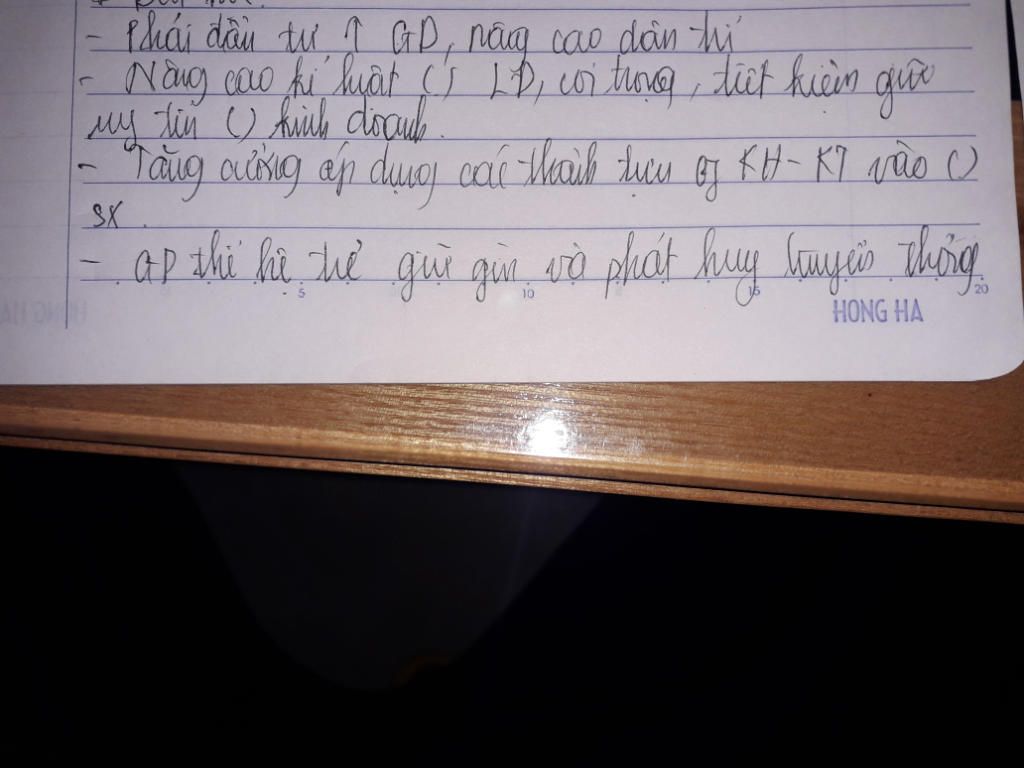 - Phải đầu tư ↑ GD, nâng cao dân trí
- Nâng cao kỉ luật () LĐ, coi trọng, tiết kiệm giữ
uy tín () kinh doanh.
- Tăng cường áp dụng các thành tựu KH - KT vào ()
SX.
- GD thế hệ trẻ giữ gìn và phát huy truyền thống
5 10 15 20
HONG HA